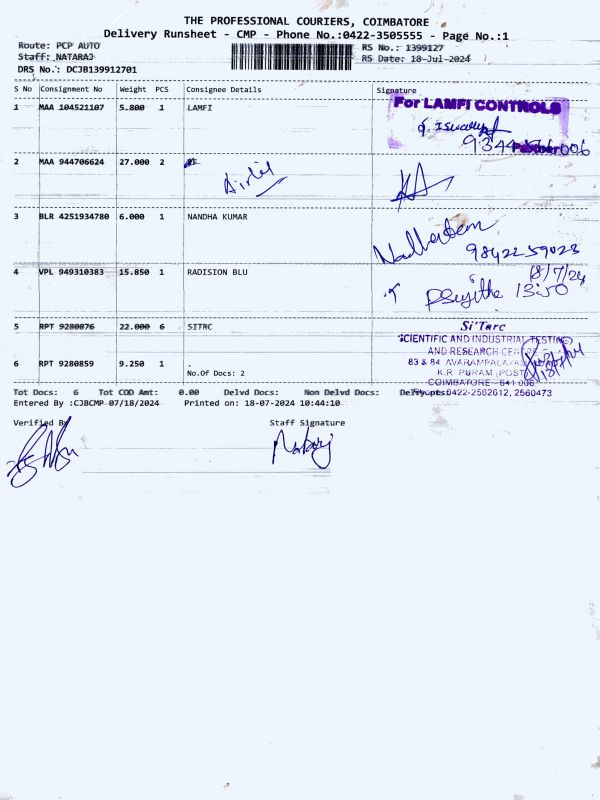 THE PROFESSIONAL COURIERS, COIMBATORE
Delivery Runsheet - CMP - Phone No.:0422-3505555 - Page No.:1
Route: PCP AUTO RS No.: 1399127
Staff: NATARAJ RS Date: 18-Jul-2024
DRS No.: DCJB139912701
S No Consignment No Weight PCS Consignee Details Signature
1 MAA 104521107 5.800 1 LAMFI
For LAMFI CONTROLS
Partner
2 MAA 944706624 27.000 2 Airtel
3 BLR 4251934780 6.000 1 NANDHA KUMAR
98422 59023
4 VPL 949310383 15.850 1 RADISION BLU
18/7/24
13:50
5 RPT 9280876 22.000 6 SITRC
Si'Tarc
SCIENTIFIC AND INDUSTRIAL TESTING
AND RESEARCH CENTRE
6 RPT 9280859 9.250 1 .
83 & 84, AVARAMPALAYAM
K.R. PURAM POST
No.Of Docs: 2
COIMBATORE - 641 006
Tot Docs: 6 Tot COD Amt: 0.00 Delvd Docs: Non Delvd Docs:
0422-2562612, 2560473
Entered By :CJBCMP 07/18/2024 Printed on: 18-07-2024 10:44:10
Verified By Staff Signature
Nataraj